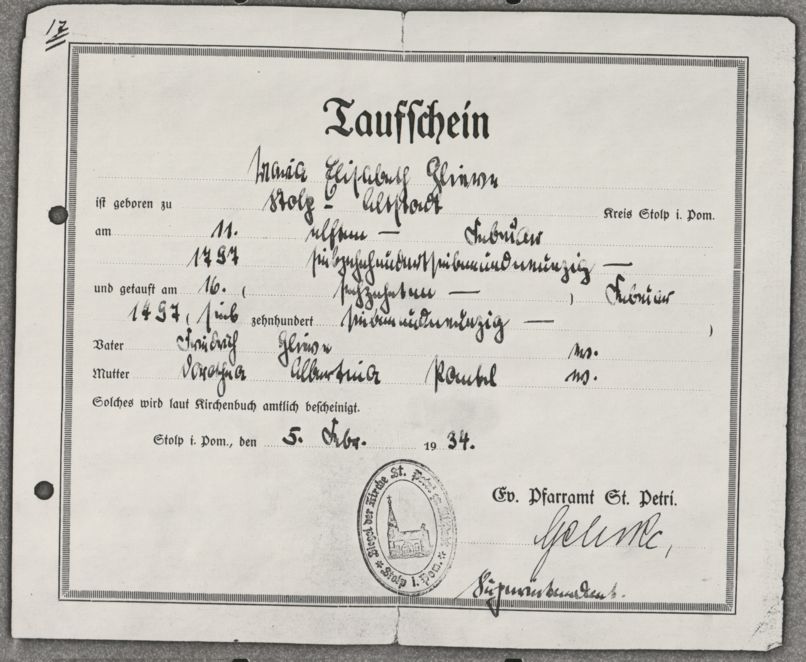 12
Taufschein
Maria Elisabeth Gliewe
ist geboren zu Stolp - Altstadt Kreis Stolp i. Pom.
am 11. elften — Februar
1797 siebzehnhundertsiebenundneunzig —
und getauft am 16. ( sechzehnten — ) Februar
1797 ( sieb zehnhundert siebenundneunzig — )
Vater Friedrich Gliewe ev.
Mutter Dorothea Albertina Pantel ev.
Solches wird laut Kirchenbuch amtlich bescheinigt.
Stolp i. Pom., den 5. Febr. 1934.
Siegel der Kirche St. Petri
Stolp i. Pom.
Ev. Pfarramt St. Petri.
Superintendent.